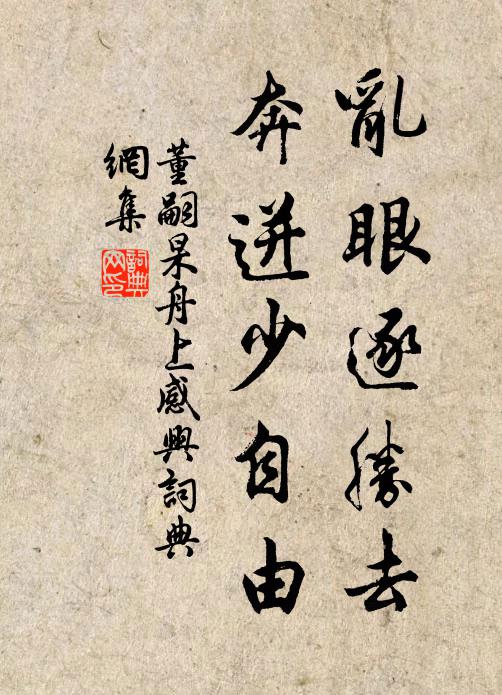 亂眼逐勝去
奔迸少自由
董嗣杲舟上感興詞典
網集
詞典
网印